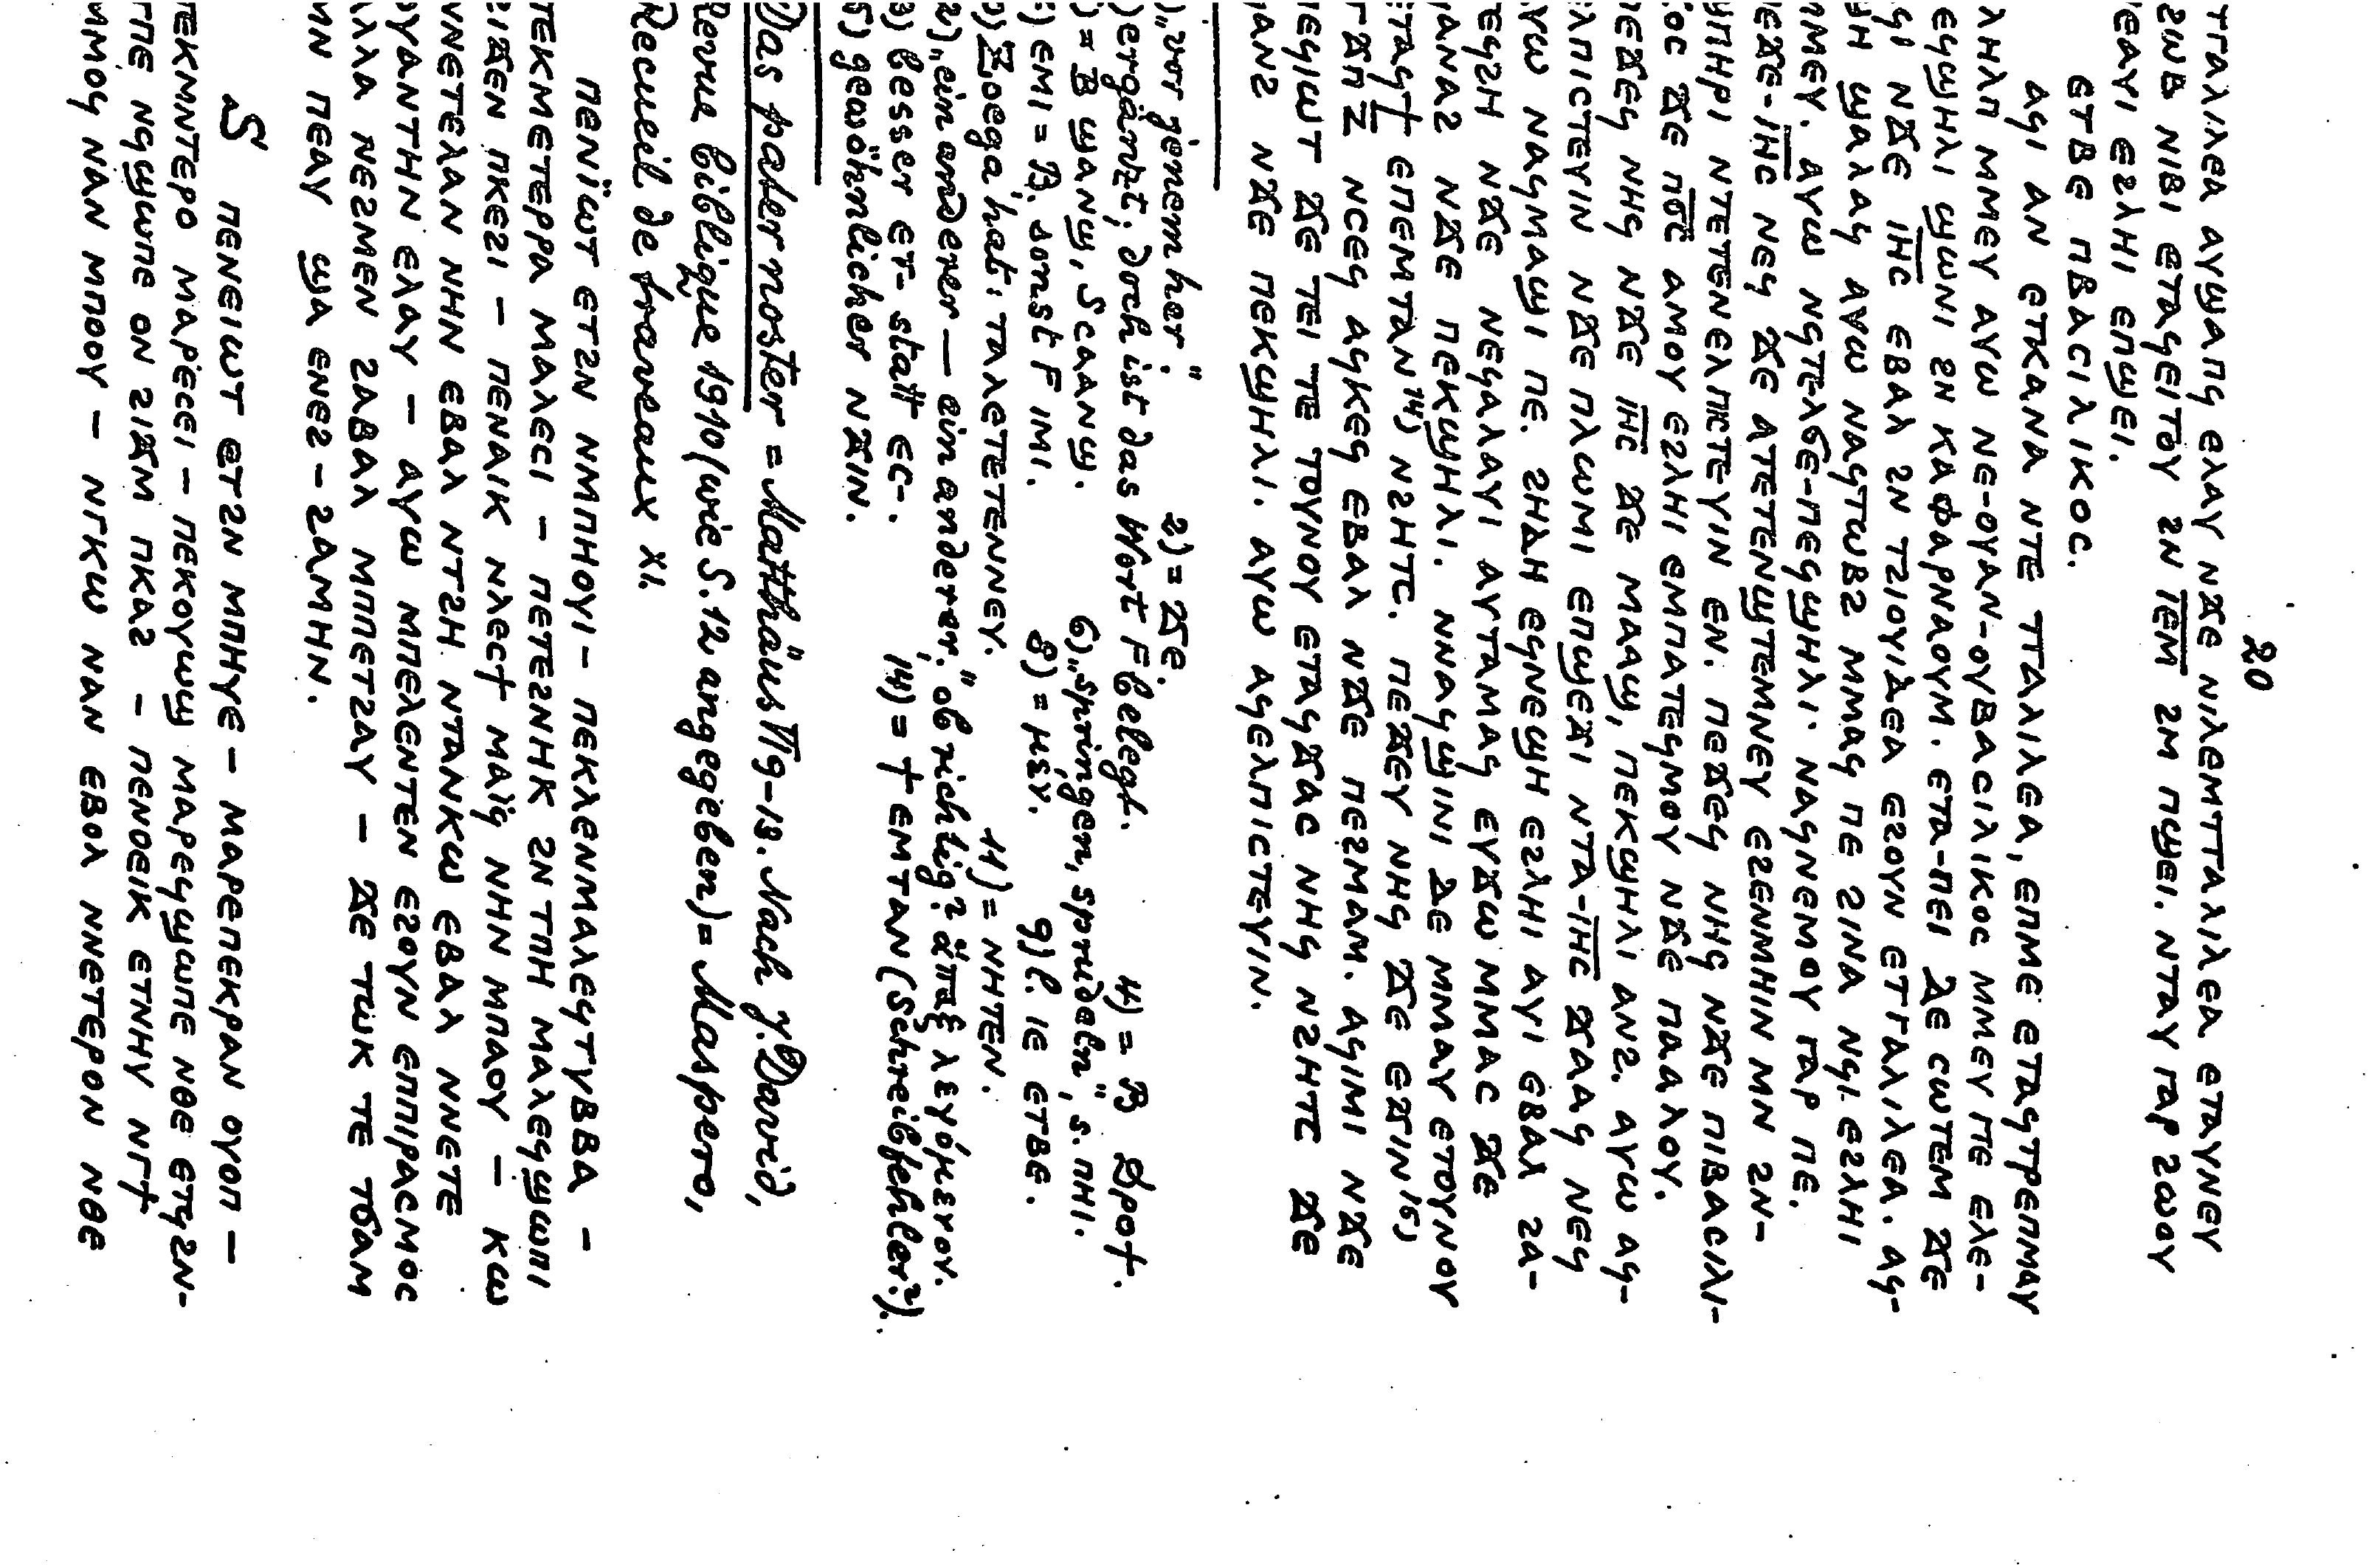 20
ⲧⲅⲁⲗⲓⲗⲉⲁ ⲁⲩϣⲁⲡϥ ⲉⲗⲁⲩ ⲛϫⲉ ⲛⲓⲗⲉⲙⲧⲅⲁⲗⲓⲗⲉⲁ ⲉⲧⲁⲩⲛⲉⲩ
ϩⲱⲃ ⲛⲓⲃⲓ ⲉⲧⲁϥⲉⲓⲧⲟⲩ ϩⲛ ⲓ̅ⲉ̅ⲙ̅ ϩⲙ ⲡϣⲉⲓ. ⲛⲧⲁⲩ ⲅⲁⲣ ϩⲱⲟⲩ
ⲛⲉⲁⲩⲓ ⲉϩⲗⲏⲓ ⲉⲡϣⲉⲓ.
ⲉⲧⲃⲉ ⲡⲃⲁⲥⲓⲗⲓⲕⲟⲥ.
ⲁϥⲓ ⲁⲛ ⲉⲧⲕⲁⲛⲁ ⲛⲧⲉ ⲧⲅⲁⲗⲓⲗⲉⲁ, ⲉⲡⲙⲉ ⲉⲧⲁϥⲧⲣⲉⲡⲙⲁⲩ
ⲗⲏⲗⲡ ⲙⲙⲉⲩ ⲁⲩⲱ ⲛⲉ-ⲟⲩⲁⲛ-ⲟⲩⲃⲁⲥⲓⲗⲓⲕⲟⲥ ⲙⲙⲉⲩ ⲡⲉ ⲉⲗⲉ-
ⲡⲉϥϣⲏⲗⲓ ϣⲱⲛⲓ ϩⲛ ⲕⲁⲫⲁⲣⲛⲁⲟⲩⲙ. ⲉⲧⲁ-ⲡⲉⲓ ⲇⲉ ⲥⲱⲧⲉⲙ ϫⲉ
ⲁϥⲓ ⲛϫⲉ ⲓ̅ⲏ̅ⲥ̅ ⲉⲃⲁⲗ ϩⲛ ⲧϩⲓⲟⲩⲇⲉⲁ ⲉϩⲟⲩⲛ ⲉⲧⲅⲁⲗⲓⲗⲉⲁ. ⲁϥ-
ϣⲏ ϣⲁⲗⲁϥ ⲁⲩⲱ ⲛⲁϥⲧⲱⲃϩ ⲙⲙⲁϥ ⲡⲉ ϩⲓⲛⲁ ⲛϥⲓ ⲉϩⲗⲏⲓ
ⲙⲙⲉⲩ. ⲁⲩⲱ ⲛϥⲧⲉⲗϭⲉ-ⲡⲉϥϣⲏⲗⲓ. ⲛⲁϥⲛⲉⲙⲟⲩ ⲅⲁⲣ ⲡⲉ.
ⲡⲉϫⲉ-ⲓ̅ⲏ̅ⲥ̅ ⲛⲉϥ ϫⲉ ⲁⲧⲉⲧⲉⲛϣⲧⲉⲙⲛⲉⲩ ⲉϩⲉⲛⲙⲏⲓⲛ ⲙⲛ ϩⲛ-
ϣⲡⲏⲣⲓ ⲛⲧⲉⲧⲉⲛⲉⲗⲡⲓⲥⲧⲉⲩⲓⲛ ⲉⲛ. ⲡⲉϫⲉϥ ⲛⲏϥ ⲛϫⲉ ⲡⲓⲃⲁⲥⲓⲗⲓ-
ⲕⲟⲥ ϫⲉ ⲡ̅ⲟ̅ⲥ̅ ⲁⲙⲟⲩ ⲉϩⲗⲏⲓ ⲉⲙⲡⲁⲧⲉϥⲙⲟⲩ ⲛϫⲉ ⲡⲁⲁⲗⲟⲩ.
ⲡⲉϫⲉϥ ⲛⲏϥ ⲛϫⲉ ⲓ̅ⲏ̅ⲥ̅ ϫⲉ ⲙⲁⲁϣ, ⲡⲉⲕϣⲏⲗⲓ ⲁⲛϩ. ⲁⲩⲱ ⲁϥ-
ⲉⲗⲡⲓⲥⲧⲉⲩⲓⲛ ⲛϫⲉ ⲡⲗⲱⲙⲓ ⲉⲡϣⲉϫⲓ ⲛⲧⲁ-ⲓ̅ⲏ̅ⲥ̅ ϫⲁⲁϥ ⲛⲉϥ
ⲁⲩⲱ ⲛⲁϥⲙⲁϣⲓ ⲡⲉ. ϩⲏⲇⲏ ⲉϥⲛⲉϣⲏ ⲉϩⲗⲏⲓ ⲁⲩⲓ ⲉⲃⲁⲗ ϩⲁ-
ⲧⲉϥϩⲏ ⲛϫⲉ ⲛⲉϥⲁⲗⲁⲩⲓ ⲁⲩⲧⲁⲙⲁϥ ⲉⲩϫⲱ ⲙⲙⲁⲥ ϫⲉ
ϥⲁⲛⲁϩ ⲛϫⲉ ⲡⲉⲕϣⲏⲗⲓ. ⲛⲛⲁϥϣⲓⲛⲓ ⲇⲉ ⲙⲙⲁⲩ ⲉⲧⲟⲩⲛⲟⲩ
ⲉⲧⲁϥϯ ⲉⲡⲉⲙⲧⲁⲛ¹⁴⁾ ⲛϩⲏⲧⲥ. ⲡⲉϫⲉⲩ ⲛⲏϥ ϫⲉ ⲉϫⲓⲛ¹⁵⁾
ⲧϫⲡ ⲍ̅ ⲛⲥⲉϥ ⲁϥⲕⲉϥ ⲉⲃⲁⲗ ⲛϫⲉ ⲡⲉϩⲙⲁⲙ. ⲁϥⲓⲙⲓ ⲛϫⲉ
ⲡⲉϥⲓⲱⲧ ϫⲉ ⲧⲉⲓ ⲧⲉ ⲧⲟⲩⲛⲟⲩ ⲉⲧⲁϥϫⲁⲥ ⲛⲏϥ ⲛϩⲏⲧⲥ ϫⲉ
ϥⲁⲛϩ ⲛϫⲉ ⲡⲉⲕϣⲏⲗⲓ. ⲁⲩⲱ ⲁϥⲉⲗⲡⲓⲥⲧⲉⲩⲓⲛ.
1) „vor jenem her“. 2) = ϫⲉ.
ergänzt; doch ist das Wort F belegt. 4) = B Spot.
= B ϣⲁⲛϣ, S ⲥⲁⲁⲛϣ. 6) „springen, sprudeln“, s. ⲡⲏⲓ.
ⲉⲙⲓ = B. sonst F ⲓⲙⲓ. 8) = μέν. 9) l. ⲓⲉ ⲉⲧⲃⲉ.
10) Zoega hat: ⲧⲁⲗⲉⲧⲉⲧⲉⲛⲛⲉⲩ. 11) = ⲛⲏⲧⲉⲛ.
12) „ein anderer — ein anderer“, ob richtig? ἅπαξ λεγόμενον.
13) besser ⲉⲧ- statt ⲉⲥ-. 14) = ϯ ⲉⲙⲧⲁⲛ (Schreibfehler?).
15) gewöhnlicher ⲛϫⲓⲛ.
Das pater noster = Matthäus VI 9-13. Nach J. David,
Revue biblique 1910 (wie S. 12 angegeben) = Maspero,
Recueil de travaux XI.
ⲡⲉⲛⲓ̈ⲱⲧ ⲉⲧϩⲛ ⲛⲙⲡⲏⲟⲩⲓ - ⲡⲉⲕⲗⲉⲛⲙⲁⲗⲉϥⲧⲩⲃⲃⲁ -
ⲧⲉⲕⲙⲉⲧⲉⲣⲣⲁ ⲙⲁⲗⲉⲥⲓ - ⲡⲉⲧⲉϩⲛⲏⲕ ϩⲛ ⲧⲡⲏ ⲙⲁⲗⲉϥϣⲱⲡⲓ
ϩⲓϫⲉⲛ ⲡⲕⲉϩⲓ - ⲡⲉⲛⲁⲓⲕ ⲛⲗⲉⲥϯ ⲙⲁⲓ̈ϥ ⲛⲏⲛ ⲙⲡⲁⲟⲩ - ⲕⲱ
ⲛⲛⲉⲧⲉⲗⲁⲛ ⲛⲏⲛ ⲉⲃⲁⲗ ⲛⲧϩⲏ ⲛⲧⲁⲛⲕⲱ ⲉⲃⲁⲗ ⲛⲛⲉⲧⲉ
ⲟⲩⲁⲛⲧⲏⲛ ⲉⲗⲁⲩ - ⲁⲩⲱ ⲙⲡⲉⲗⲉⲛⲧⲉⲛ ⲉϩⲟⲩⲛ ⲉⲡⲡⲓⲣⲁⲥⲙⲟⲥ
ⲁⲗⲗⲁ ⲛⲉϩⲙⲉⲛ ϩⲁⲃⲁⲗ ⲙⲡⲡⲉⲧϩⲁⲩ - ϫⲉ ⲧⲱⲕ ⲧⲉ ⲧϭⲁⲙ
ⲙⲛ ⲡⲉⲁⲩ ϣⲁ ⲉⲛⲉϩ - ϩⲁⲙⲏⲛ.
S ⲡⲉⲛⲉⲓⲱⲧ ⲉⲧϩⲛ ⲙⲡⲏⲩⲉ - ⲙⲁⲣⲉⲡⲉⲕⲣⲁⲛ ⲟⲩⲟⲡ -
ⲧⲉⲕⲙⲛⲧⲉⲣⲟ ⲙⲁⲣⲉⲥⲉⲓ - ⲡⲉⲕⲟⲩⲱϣ ⲙⲁⲣⲉϥϣⲱⲡⲉ ⲛⲑⲉ ⲉⲧϥϩⲛ-
ⲧⲡⲉ ⲛϥϣⲱⲡⲉ ⲟⲛ ϩⲓϫⲙ ⲡⲕⲁϩ - ⲡⲉⲛⲟⲉⲓⲕ ⲉⲧⲛⲏⲩ ⲛⲅϯ
ⲙⲙⲟϥ ⲛⲁⲛ ⲙⲡⲟⲟⲩ - ⲛⲅⲕⲱ ⲛⲁⲛ ⲉⲃⲟⲗ ⲛⲛⲉⲧⲉⲣⲟⲛ ⲛⲑⲉ